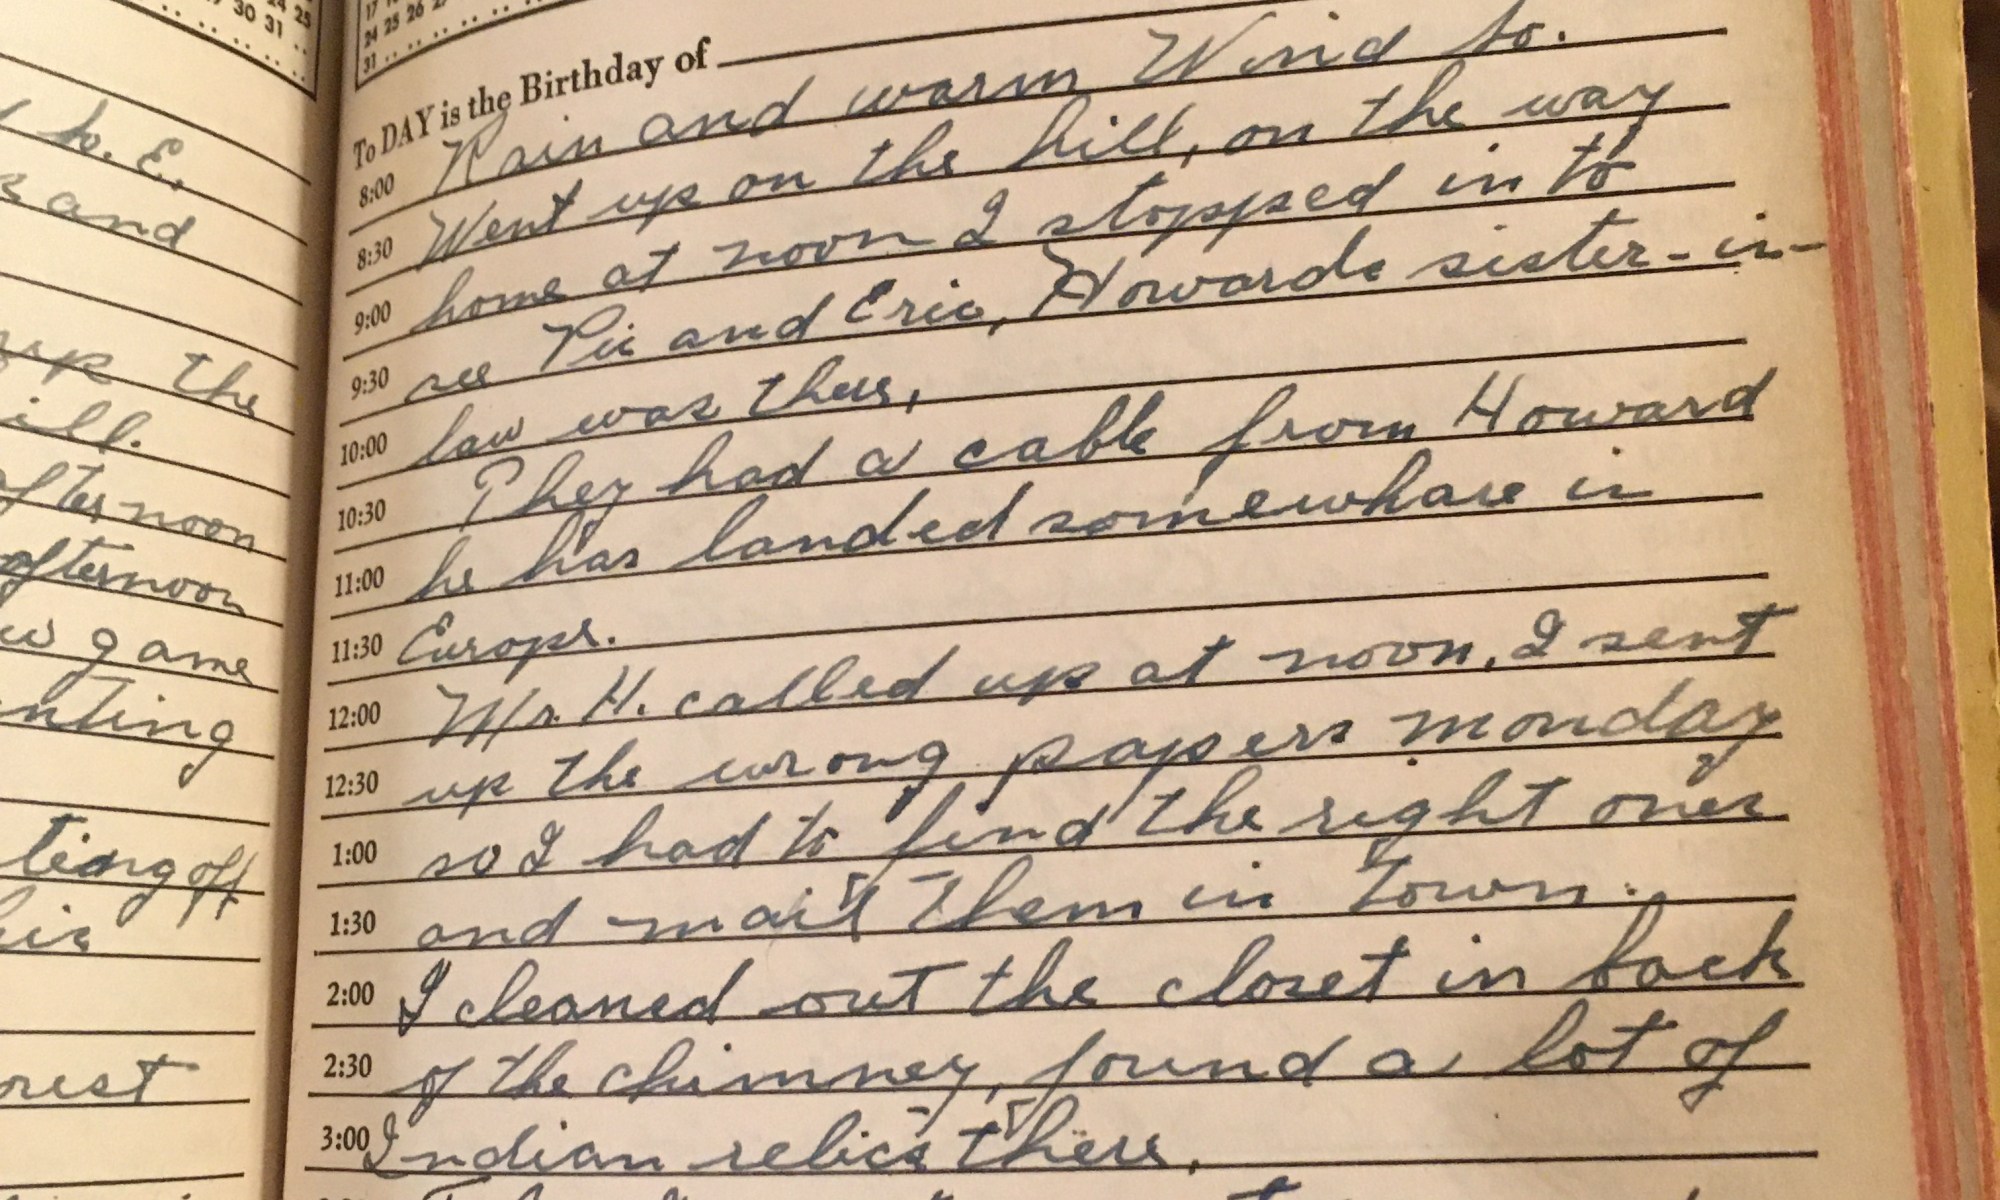 24 25
30 31 ..
17
24 25 26
31 .. .. .. ..
E.
and
the
ill.
afternoon
afternoon
game
nting
ting off
his
To DAY is the Birthday of
8:00 Rain and warm Wind So.
8:30 Went up on the hill, on the way
9:00 home at noon I stopped in to
9:30 see and Eric, Howards sister-in-
10:00 law was there,
10:30 They had a cable from Howard
11:00 he has landed somewhare in
11:30 Europe.
12:00 Mr. H. called up at noon, I sent
12:30 up the wrong papers monday
1:00 so I had to find the right ones
1:30 and mail them in town.
2:00 I cleaned out the closet in back
2:30 of the chimney, found a lot of
3:00 Indian relics there,